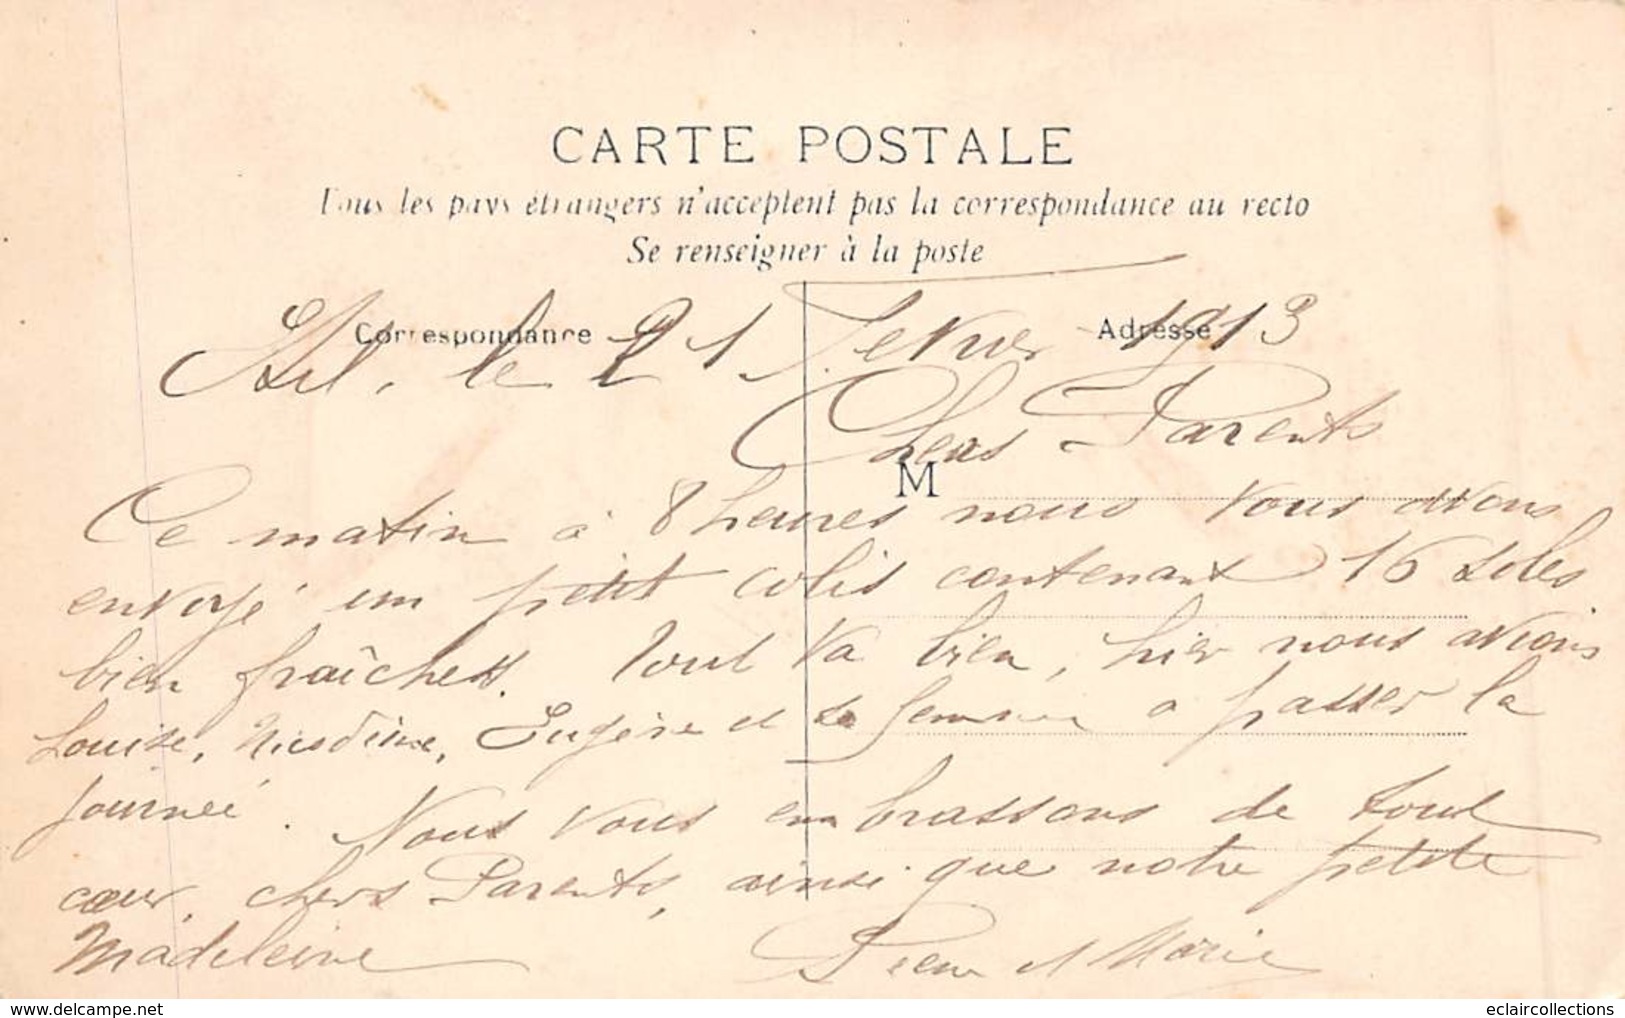 CARTE POSTALE
Tous les pays étrangers n'acceptent pas la correspondance au recto
Se renseigner à la poste
Correspondance
Adresse
le 21 Fevrier 1913
Chers Parents
M
Ce matin à 8 heures nous vous avons
envoyé un petit colis contenant 16 soles
bien fraîches. Tout va bien, hier nous avions
Louise, Nicodème, Eugène et sa femme a passer la
journeé. Nous vous embrassons de tout
cœur, chers Parents, ainsi que notre petite
Madeleine
Pierre et Marie
eclaircollections